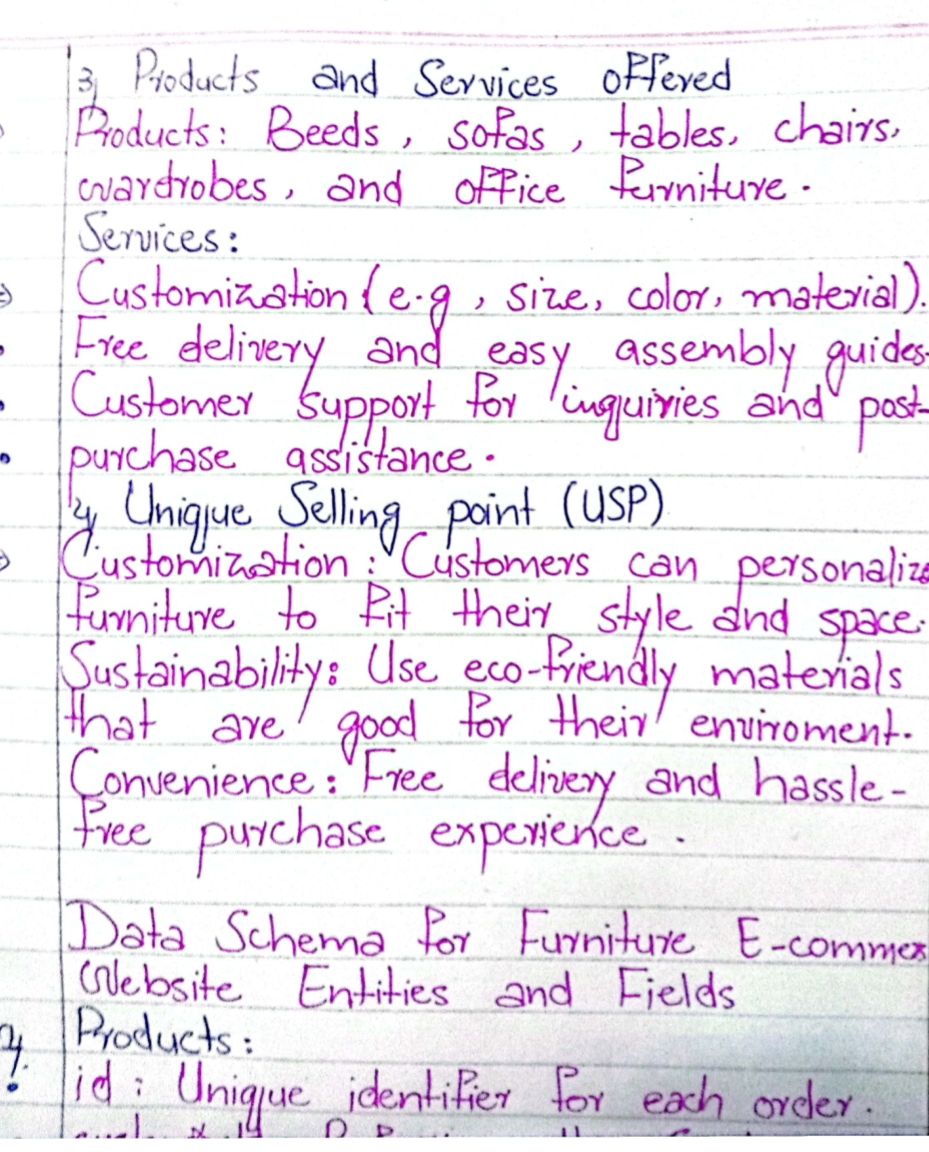 3, Products and Services offered
Products: Beeds, sofas, tables, chairs,
wardrobes, and office furniture.
Services:
Customization (e.g, size, color, material).
Free delivery and easy assembly guides.
Customer support for inquiries and post-
purchase assistance.
4, Unique Selling point (USP)
Customization: Customers can personalize
furniture to fit their style and space.
Sustainability: Use eco-friendly materials
that are good for their enviroment.
Convenience: Free delivery and hassle-
free purchase experience.
Data Schema for Furniture E-commer
Website Entities and Fields
Products:
id: Unique identifier for each order.